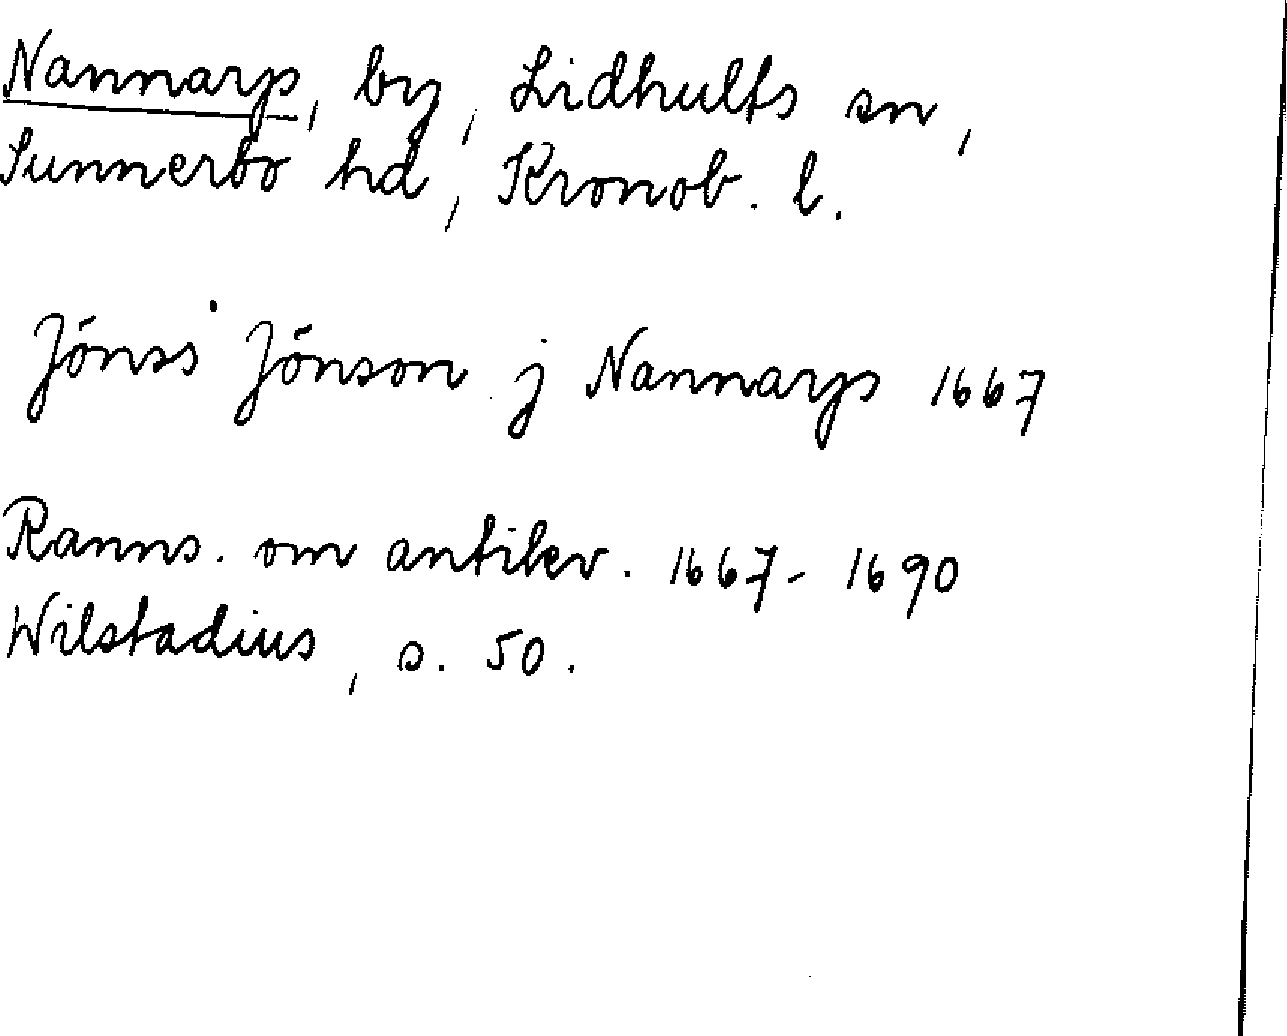 Nannarps, by, Lidhults sn,
Sunnerbo hd, Kronob. l.
Jönss Jönson j Nannarps 1667
Ranns. om antikv. 1667-1690
Wilstadius, s. 50.